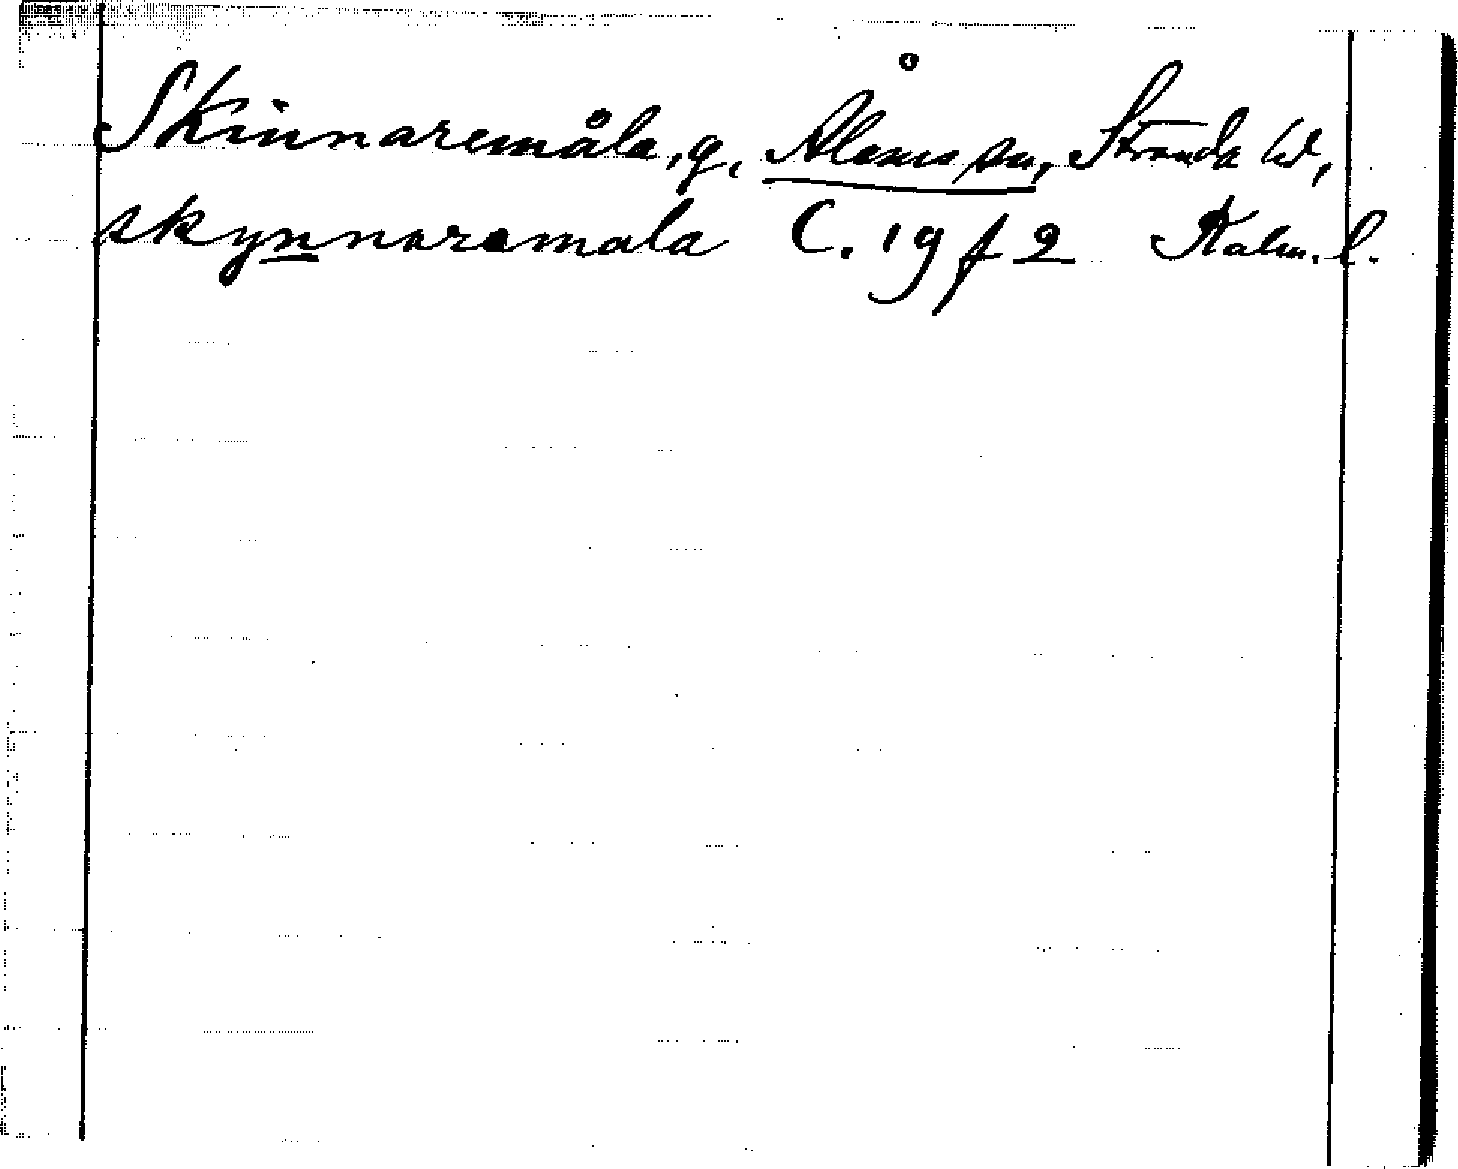 Skinnaremåla, g, Ålems sn, Stranda hd,
skynnaremala C. 19 f 2 Kalm. l.